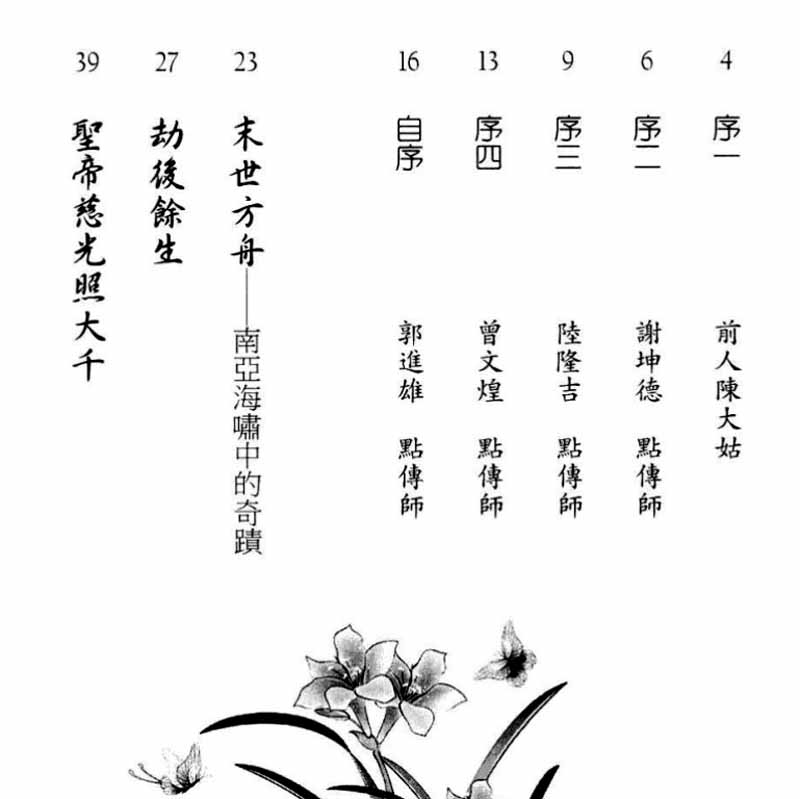 4 序一 前人陳大姑
6 序二 謝坤德 點傳師
9 序三 陸隆吉 點傳師
13 序四 曾文煌 點傳師
16 自序 郭進雄 點傳師
23 末世方舟——南亞海嘯中的奇蹟
27 劫後餘生
39 聖帝慈光照大千